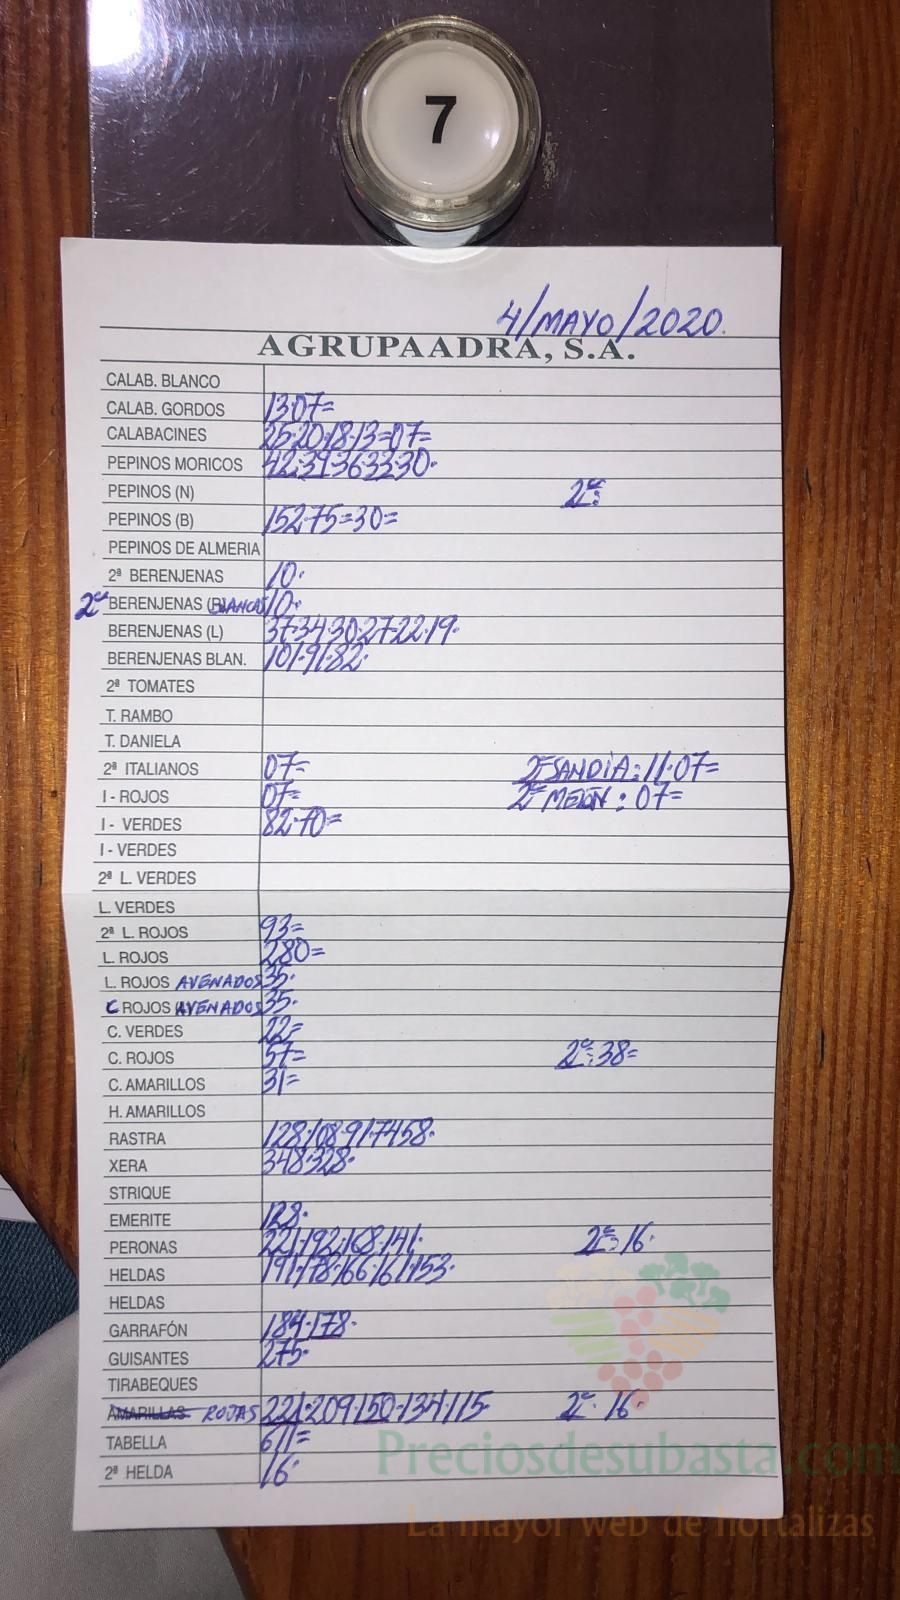 7
4/MAYO/2020.
AGRUPAADRA, S.A.
CALAB. BLANCO
CALAB. GORDOS 13·07=
CALABACINES 25·20·18·13=07=
PEPINOS MORICOS 42·39·36·33·30·
PEPINOS (N) 2ª:
PEPINOS (B) 152·75=30=
PEPINOS DE ALMERIA
2ª BERENJENAS 10·
2ª BERENJENAS (BLANCAS 10·
BERENJENAS (L) 37·34·30·27·22·19·
BERENJENAS BLAN. 101·91·82·
2ª TOMATES
T. RAMBO
T. DANIELA
2ª ITALIANOS 07= 2ª SANDÍA: 11·07=
I - ROJOS 07= 2ª MELÓN: 07=
I - VERDES 82·70=
I - VERDES
2ª L. VERDES
L. VERDES
2ª L. ROJOS 93=
L. ROJOS 280=
L. ROJOS AVENADOS 35·
C ROJOS AVENADOS 35·
C. VERDES 22=
C. ROJOS 57= 2ª: 38=
C. AMARILLOS 31=
H. AMARILLOS
RASTRA 128·108·91·74·58·
XERA 348·328·
STRIQUE
EMERITE 128·
PERONAS 221·192·168·141· 2ª: 16·
HELDAS 191·178·166·161·153·
HELDAS
GARRAFÓN 184·178·
GUISANTES 275·
TIRABEQUES
AMARILLAS ROJAS 221·209·150·134·115· 2ª· 16·
TABELLA 611=
2ª HELDA 16·
Preciosdesubasta.com
La mayor web de hortalizas